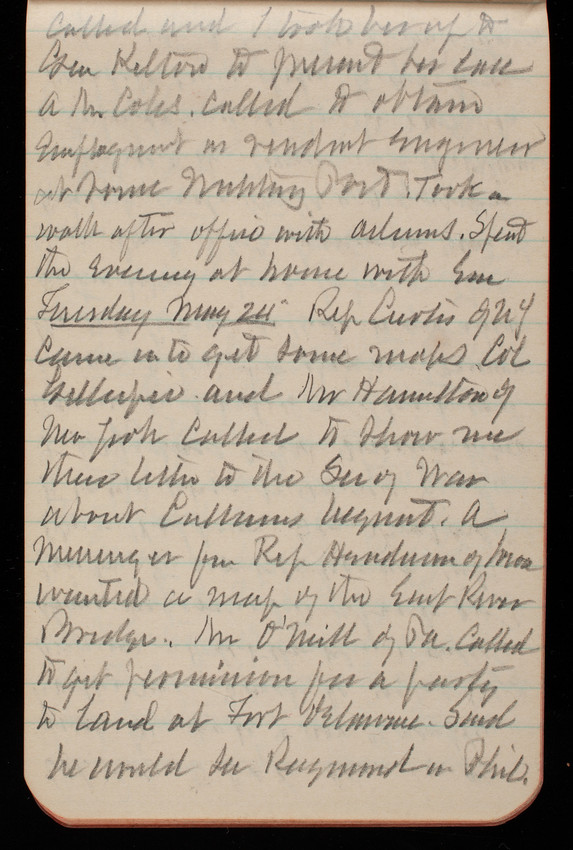 called and I took her up to
Gen Kelton to present her case
A Mr. Coles. called to obtain
Employment as resident Engineer
at some Military Post. Took a
walk after office with Adams. Spent
the evening at home with Em
Tuesday May 24" Rep Curtis of NY
came in to get some maps Col
Gillespie and Mr Hamilton of
New York called to show me
their letter to the Sec of War
about Cullums bequest. A
Messenger from Rep Henderson of Iowa
wanted a map of the East River
Bridge. Mr O'Neill of Pa. called
to get permission for a party
to land at Fort Delaware. Said
he would see Raymond in Phil.